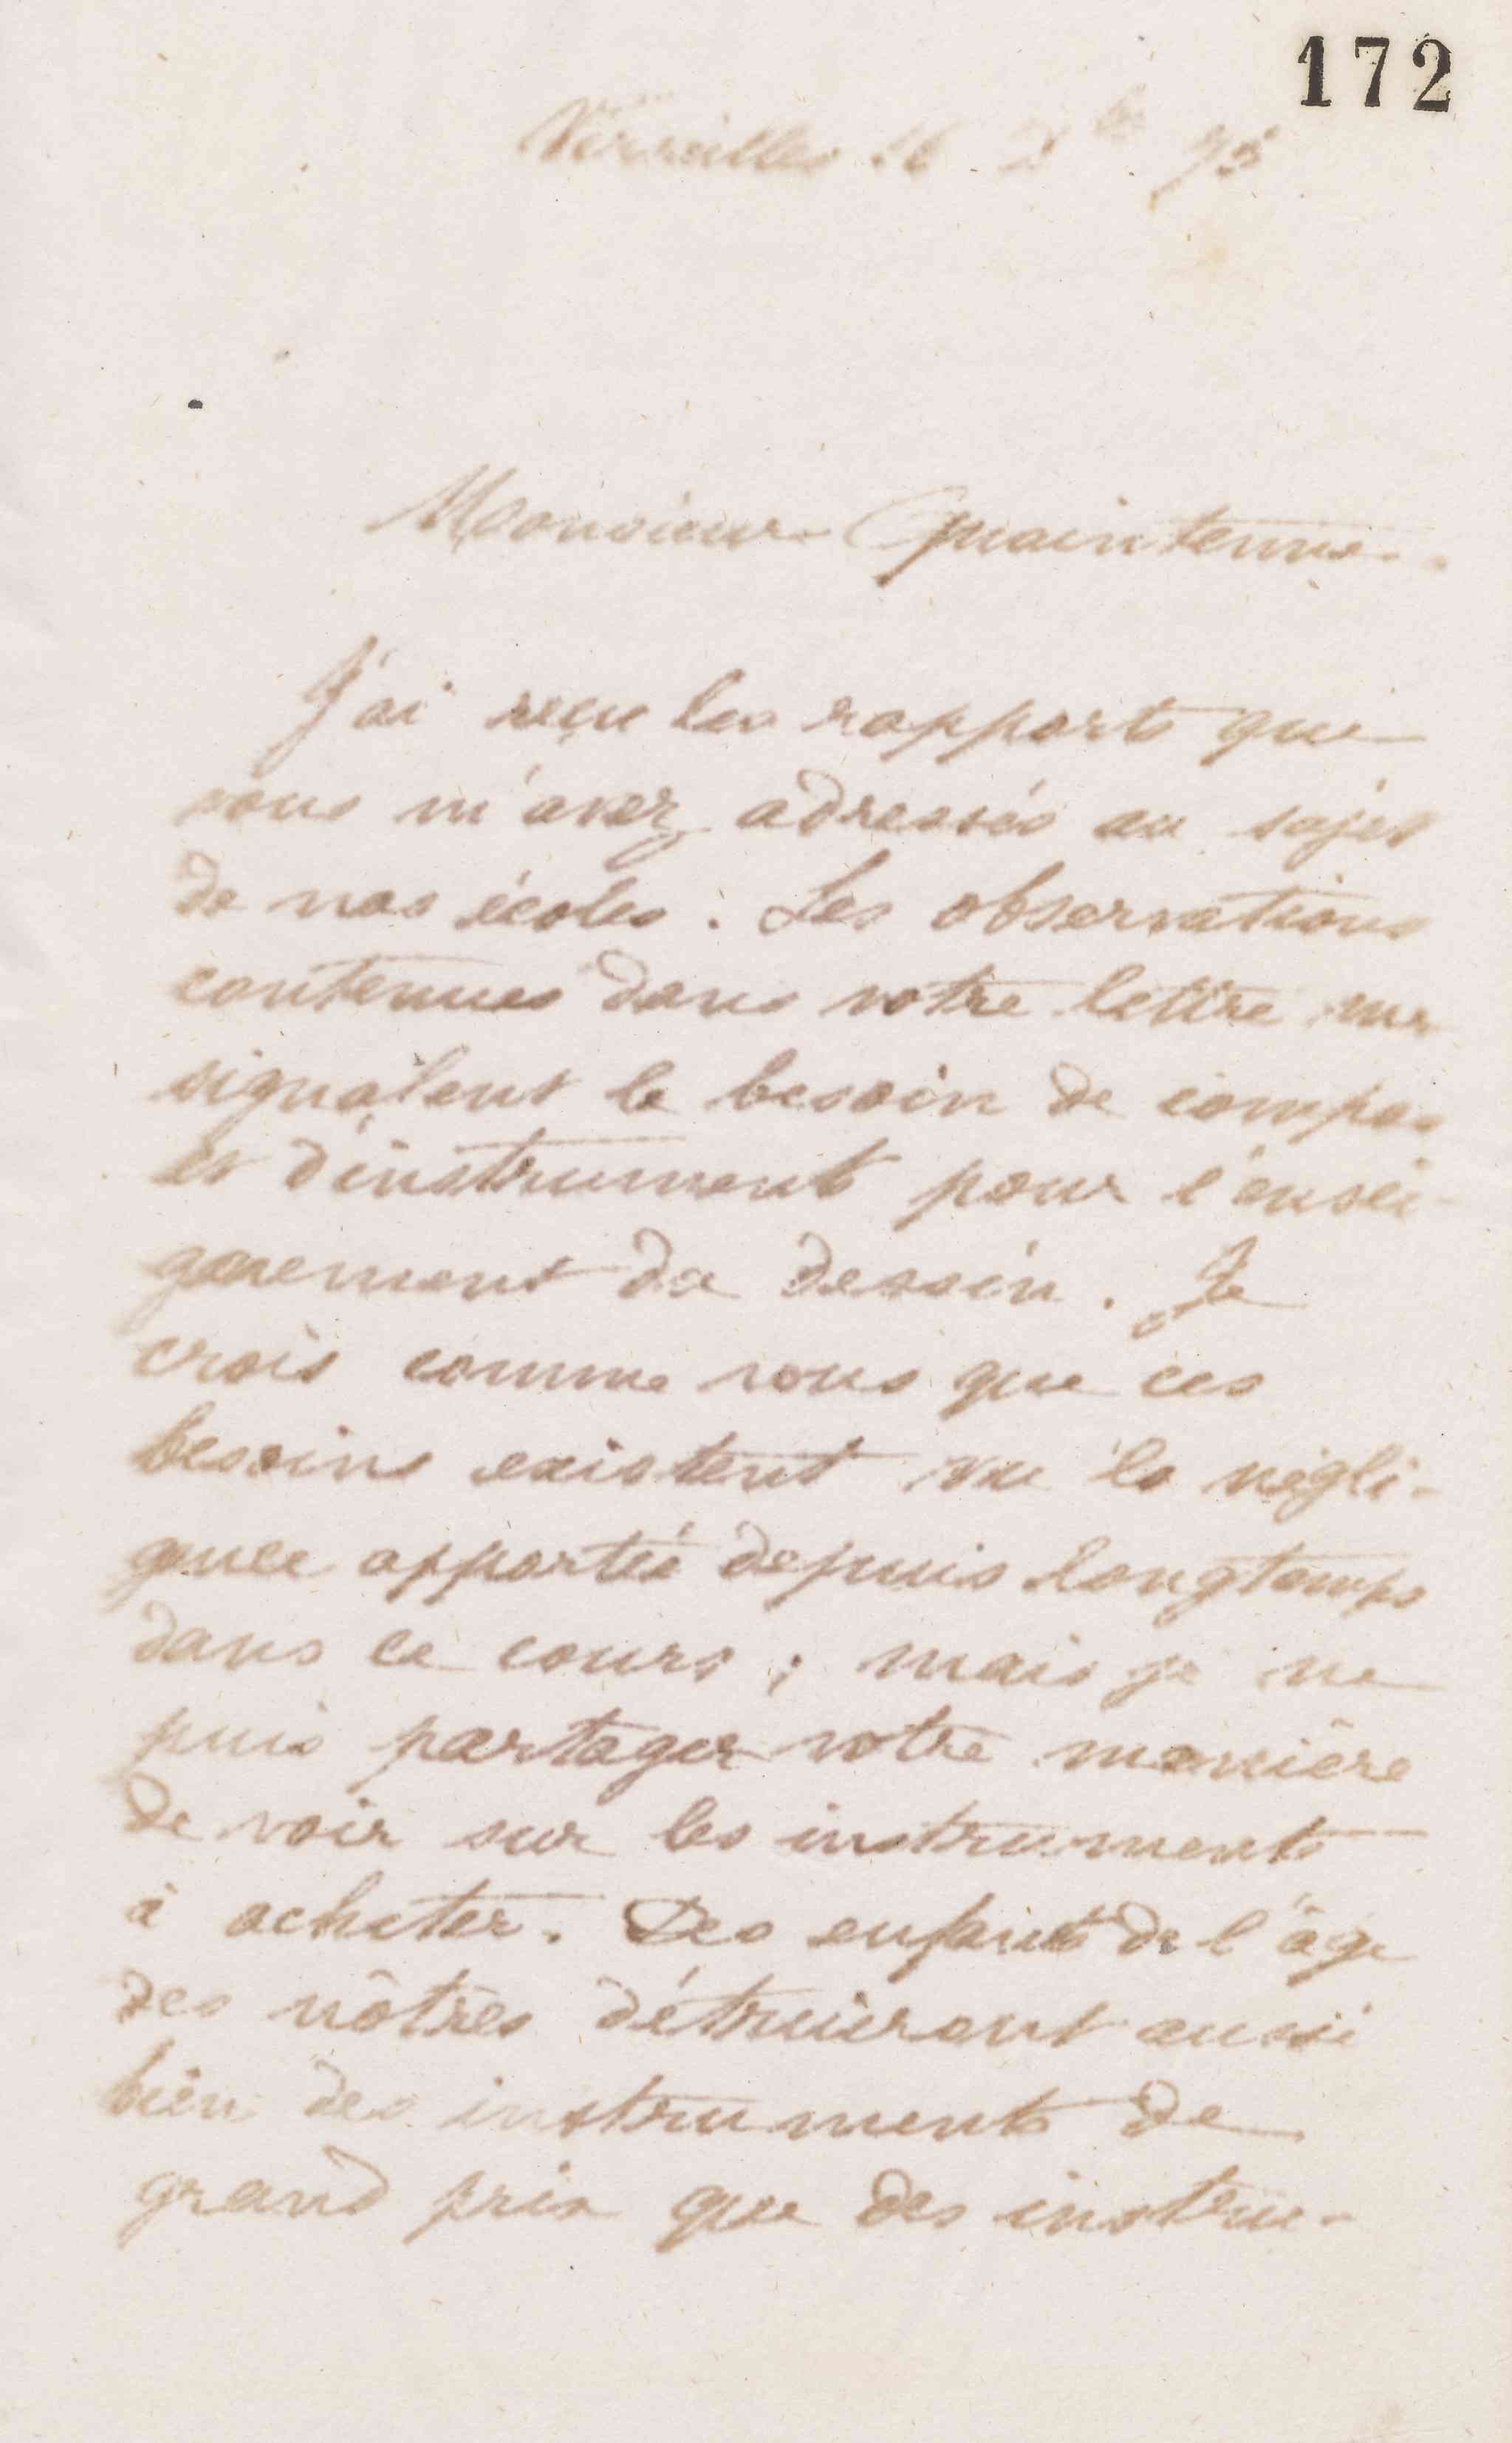 172
Versailles 16 Xbre 75
Monsieur Quaintenne
J'ai reçu les rapports que
vous m'avez adressés au sujet
de nos écoles. Les observations
contenues dans votre lettre me
signalent le besoin de compas
et d'instruments pour l'ensei-
gnement du dessin. Je
crois comme vous que ces
besoins existent vu la négli-
gence apportée depuis longtemps
dans ce cours ; mais je ne
puis partager votre manière
de voir sur les instruments
à acheter. Des enfants de l'âge
des nôtres détruiront aussi
bien des instruments de
grand prix que des instru-